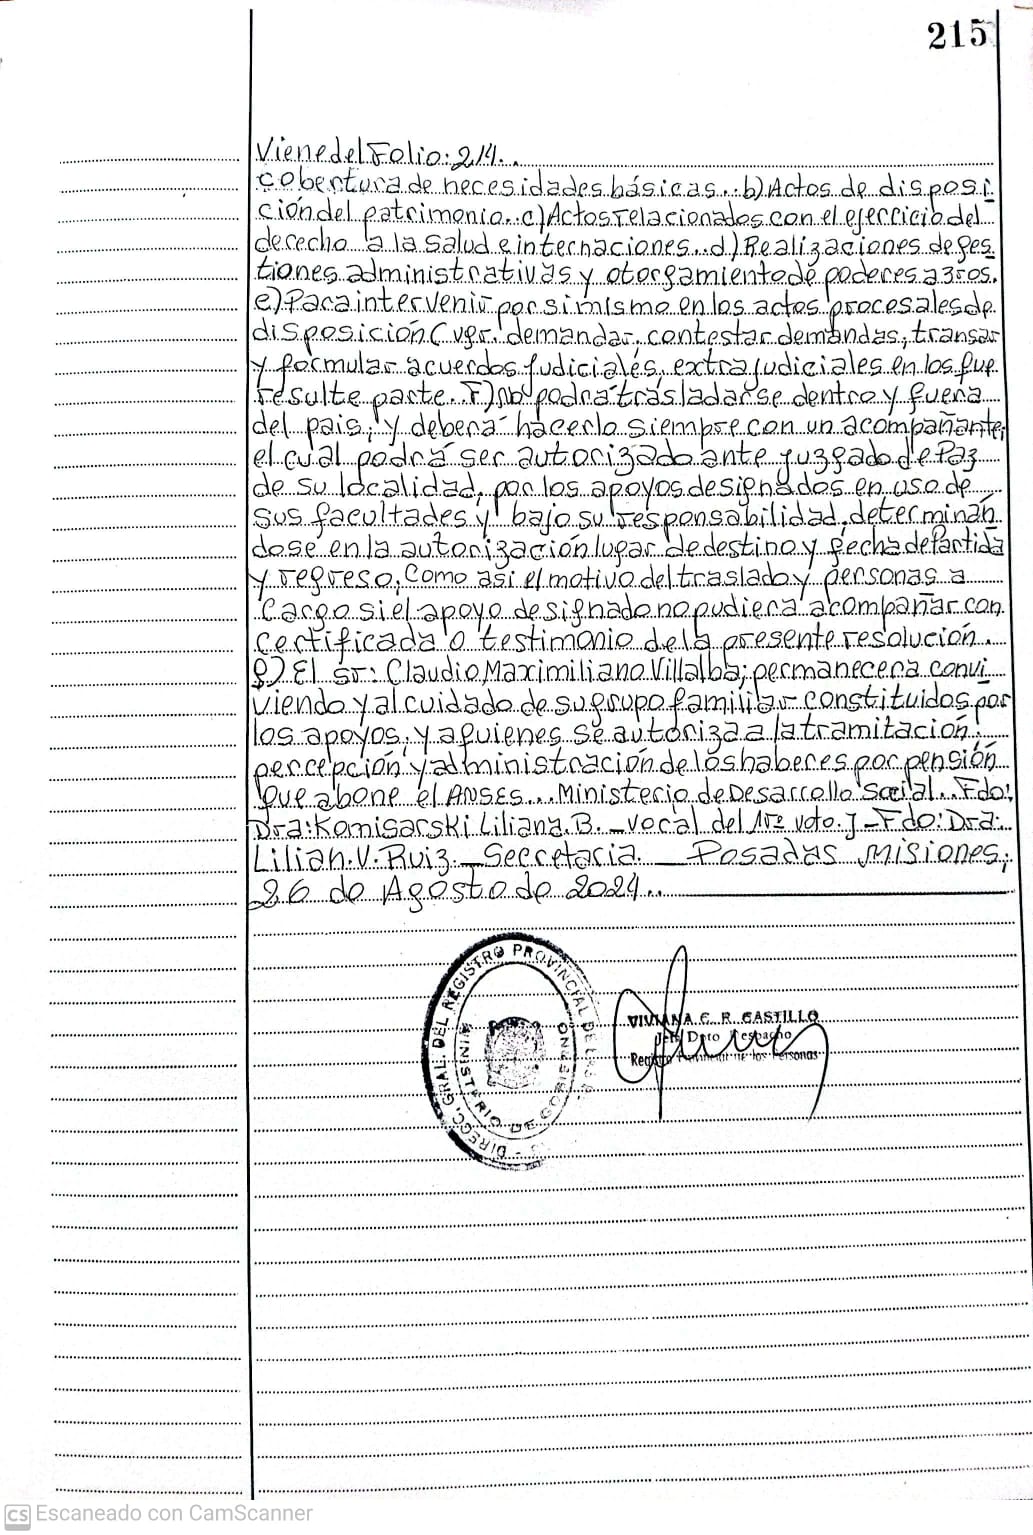 215
Viene del Folio: 214..
cobertura de necesidades básicas.. b) Actos de disposi
ción del patrimonio.. c) Actos relacionados con el ejercicio del
derecho a la salud e internaciones.. d) Realizaciones de ges
tiones administrativas y otorgamiento de poderes a 3ros.
e) Para intervenir por si mismo en los actos procesales de
disposición (vgr. demandar, contestar demandas, transar
y formular acuerdos judiciales, extrajudiciales en los que
resulte parte. F) No podrá trasladarse dentro y fuera
del pais, y deberá hacerlo siempre con un acompañante,
el cual podrá ser autorizado ante juzgado de Paz
de su localidad, por los apoyos designados en uso de
sus facultades y bajo su responsabilidad, determinan
dose en la autorización lugar de destino y fecha de Partida
y regreso, como asi el motivo del traslado y personas a
cargo si el apoyo designado no pudiera acompañar con
certificada o testimonio de la presente resolución.
g) El sr: Claudio Maximiliano Villalba; permanecera convi
viendo y al cuidado de su grupo familiar constituidos por
los apoyos, y a quienes se autoriza a la tramitación,
percepción y administración de los haberes por pensión
que abone el ANSES... Ministerio de Desarrollo Social.. Fdo:
Dra: Komisarski Liliana. B. - vocal del 1re voto. J - Fdo: Dra:
Lilian. V. Ruiz. - Secretaria. - Posadas Misiones,
26 de Agosto de 2024..
DIRECC. GRAL. DEL REGISTRO PROVINCIAL DE LAS
MINISTERIO DE GOBIERNO
VIVIANA E. R. CASTILLO
Jefe Dpto Despacho
Registro Provincial de las Personas
CS Escaneado con CamScanner